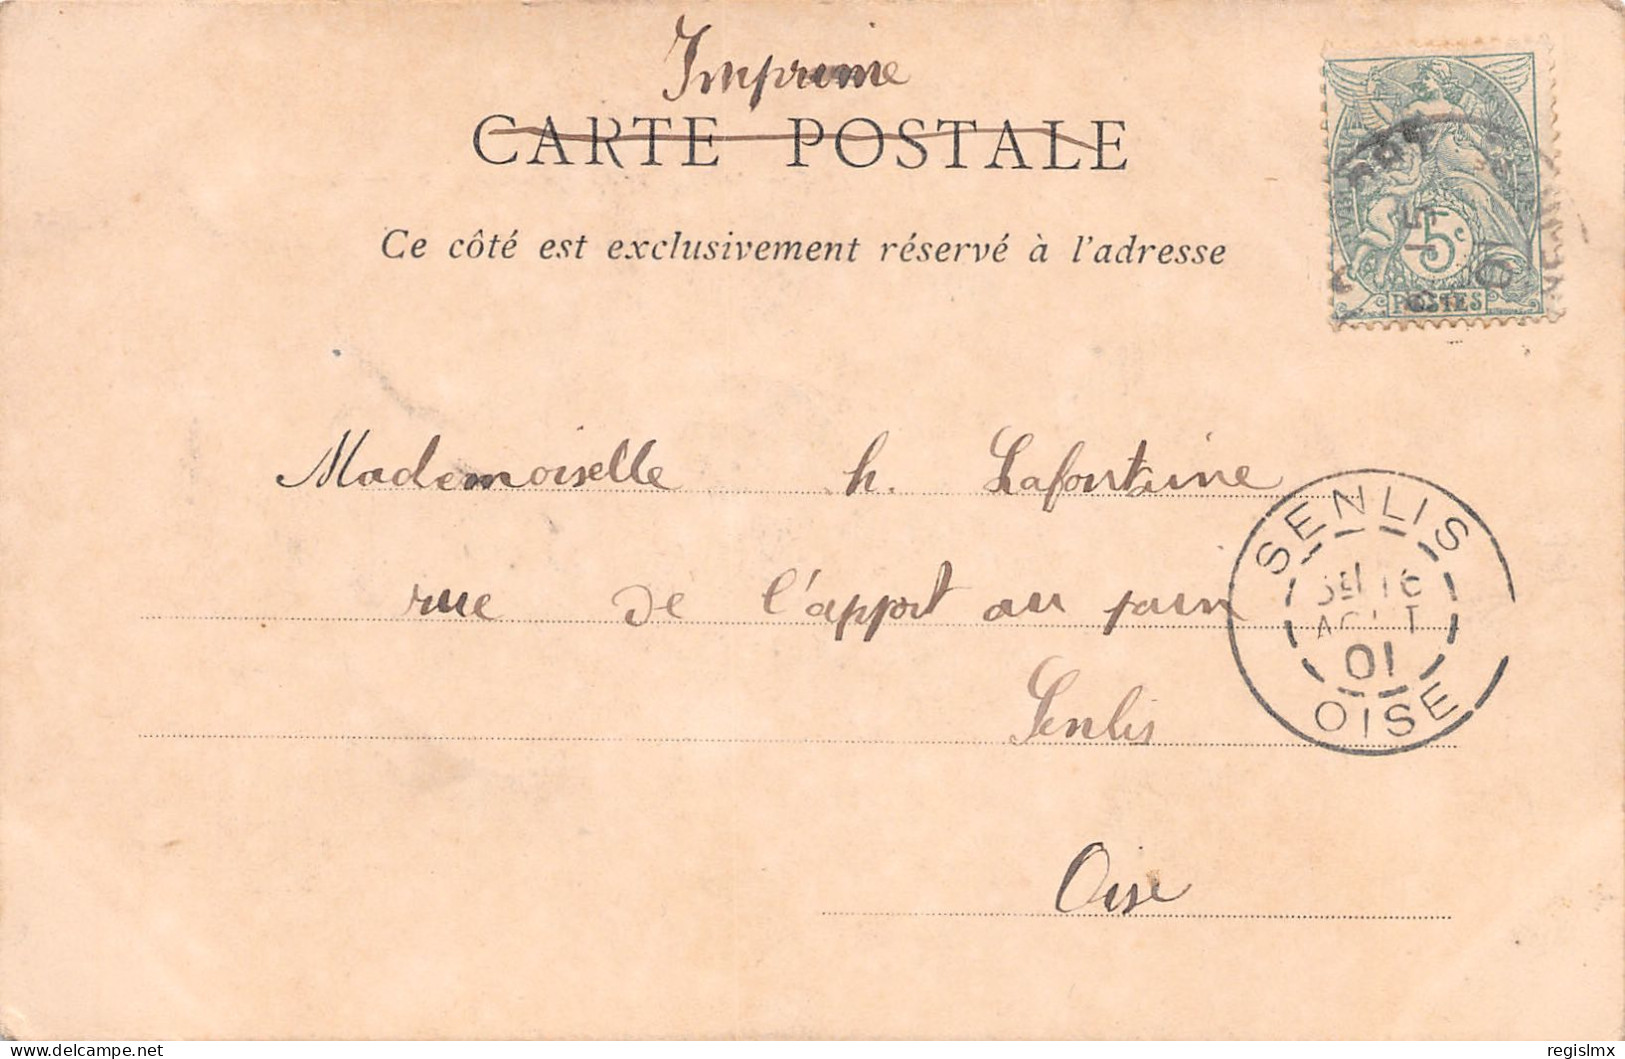 Imprime
CARTE POSTALE
Ce côté est exclusivement réservé à l'adresse
5c
POSTES
Mademoiselle h. Lafontaine
rue de l'apport au pain
Senlis
Oise
SENLIS
16
AOUT
01
OISE
www.delcampe.net
regislmx